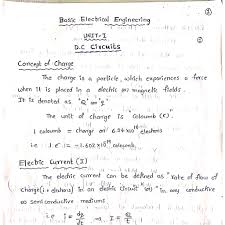 Basic Electrical Engineering
UNIT-I
D.C Circuits
Concept of Charge
The charge is a particle, which experiences a force
when it is placed in a electric or magnetic fields.
It is denoted as "Q" or "q"
The unit of charge is "coloumb (c)."
1 coloumb = charge on 6.24×10¹⁸ electrons
i.e 1e = -1.602×10⁻¹⁹ coloumb
Electric Current (I)
The electric current can be defined as "Rate of flow of
charge in an electric circuit" in any conductive
or semi conductive mediums.
i.e i = dq/dt ⇒ I = Q/t